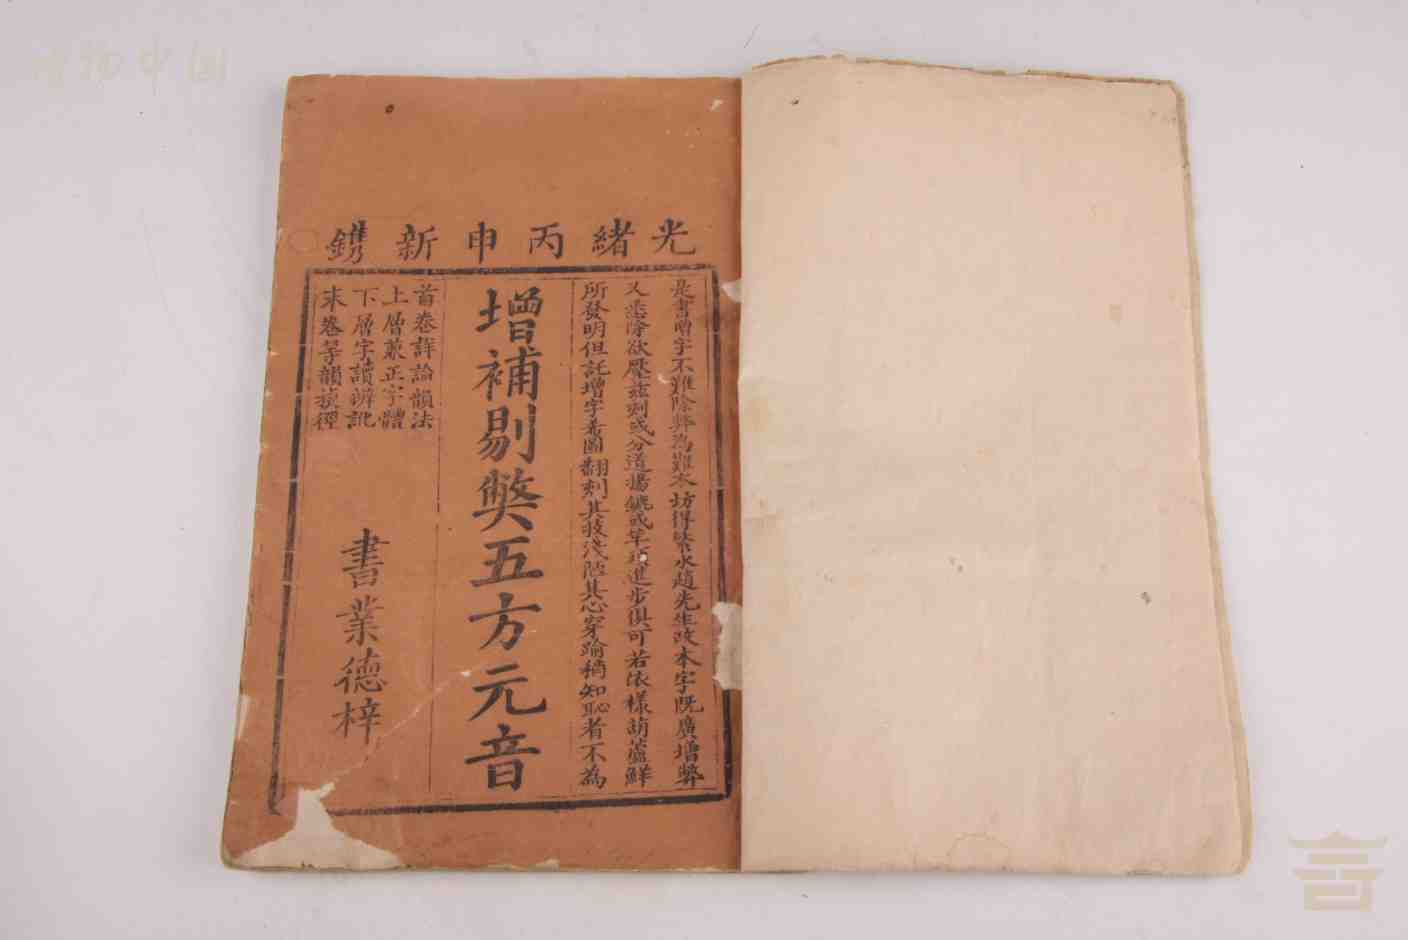 光緒丙申新鐫
是書增字不難除弊為難本坊得繁水趙先生改本字既廣增弊
又悉除欲壓茲刻或分道揚鑣或竿頭進步俱可若依樣葫蘆鮮
所發明但託增字希圖翻刻其技淺陋其心穿踰稍知恥者不為
增補剔弊五方元音
首卷詳論韻法
上層兼正字體
下層字讀辨訛
末卷尋韻捷徑
書業德梓